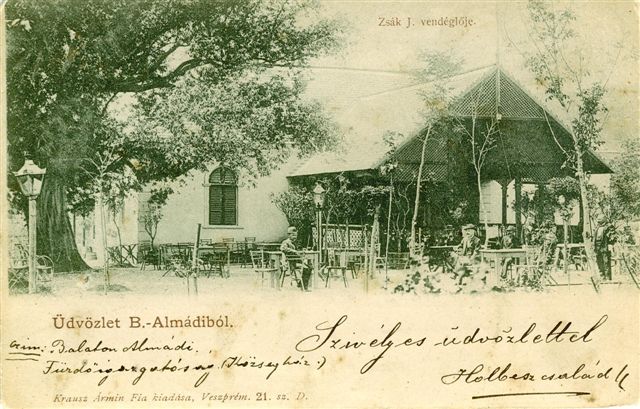 Zsák J. vendéglője.
Üdvözlet B.-Almádiból.
czim: Balaton Almádi.
Fürdőigazgatóság (Községház:)
Szivélyes üdvözlettel
Holbesz család
Krausz Ármin Fia kiadása, Veszprém. 21. sz. D.